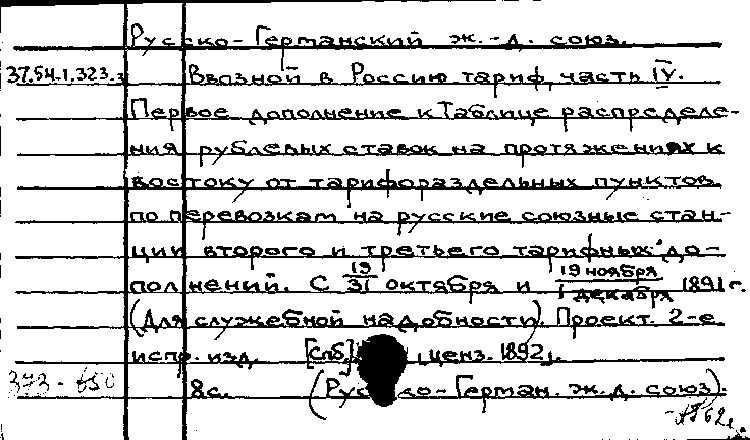 Русско-Германский ж.-д. союз.
37.54.1.323.3 Ввозной в Россию тариф, часть IV.
Первое дополнение к Таблице распределе-
ния рублевых ставок на протяжениях к
востоку от тарифораздельных пунктов
по перевозкам на русские союзные стан-
ции второго и третьего тарифных до-
полнений. С 19/31 октября и 19 ноября/1 декабря 1891 г.
(Для служебной надобности). Проект. 2-е
испр. изд. [Спб.], ценз. 1892.
8с. (Русско-Герман. ж.д. союз).